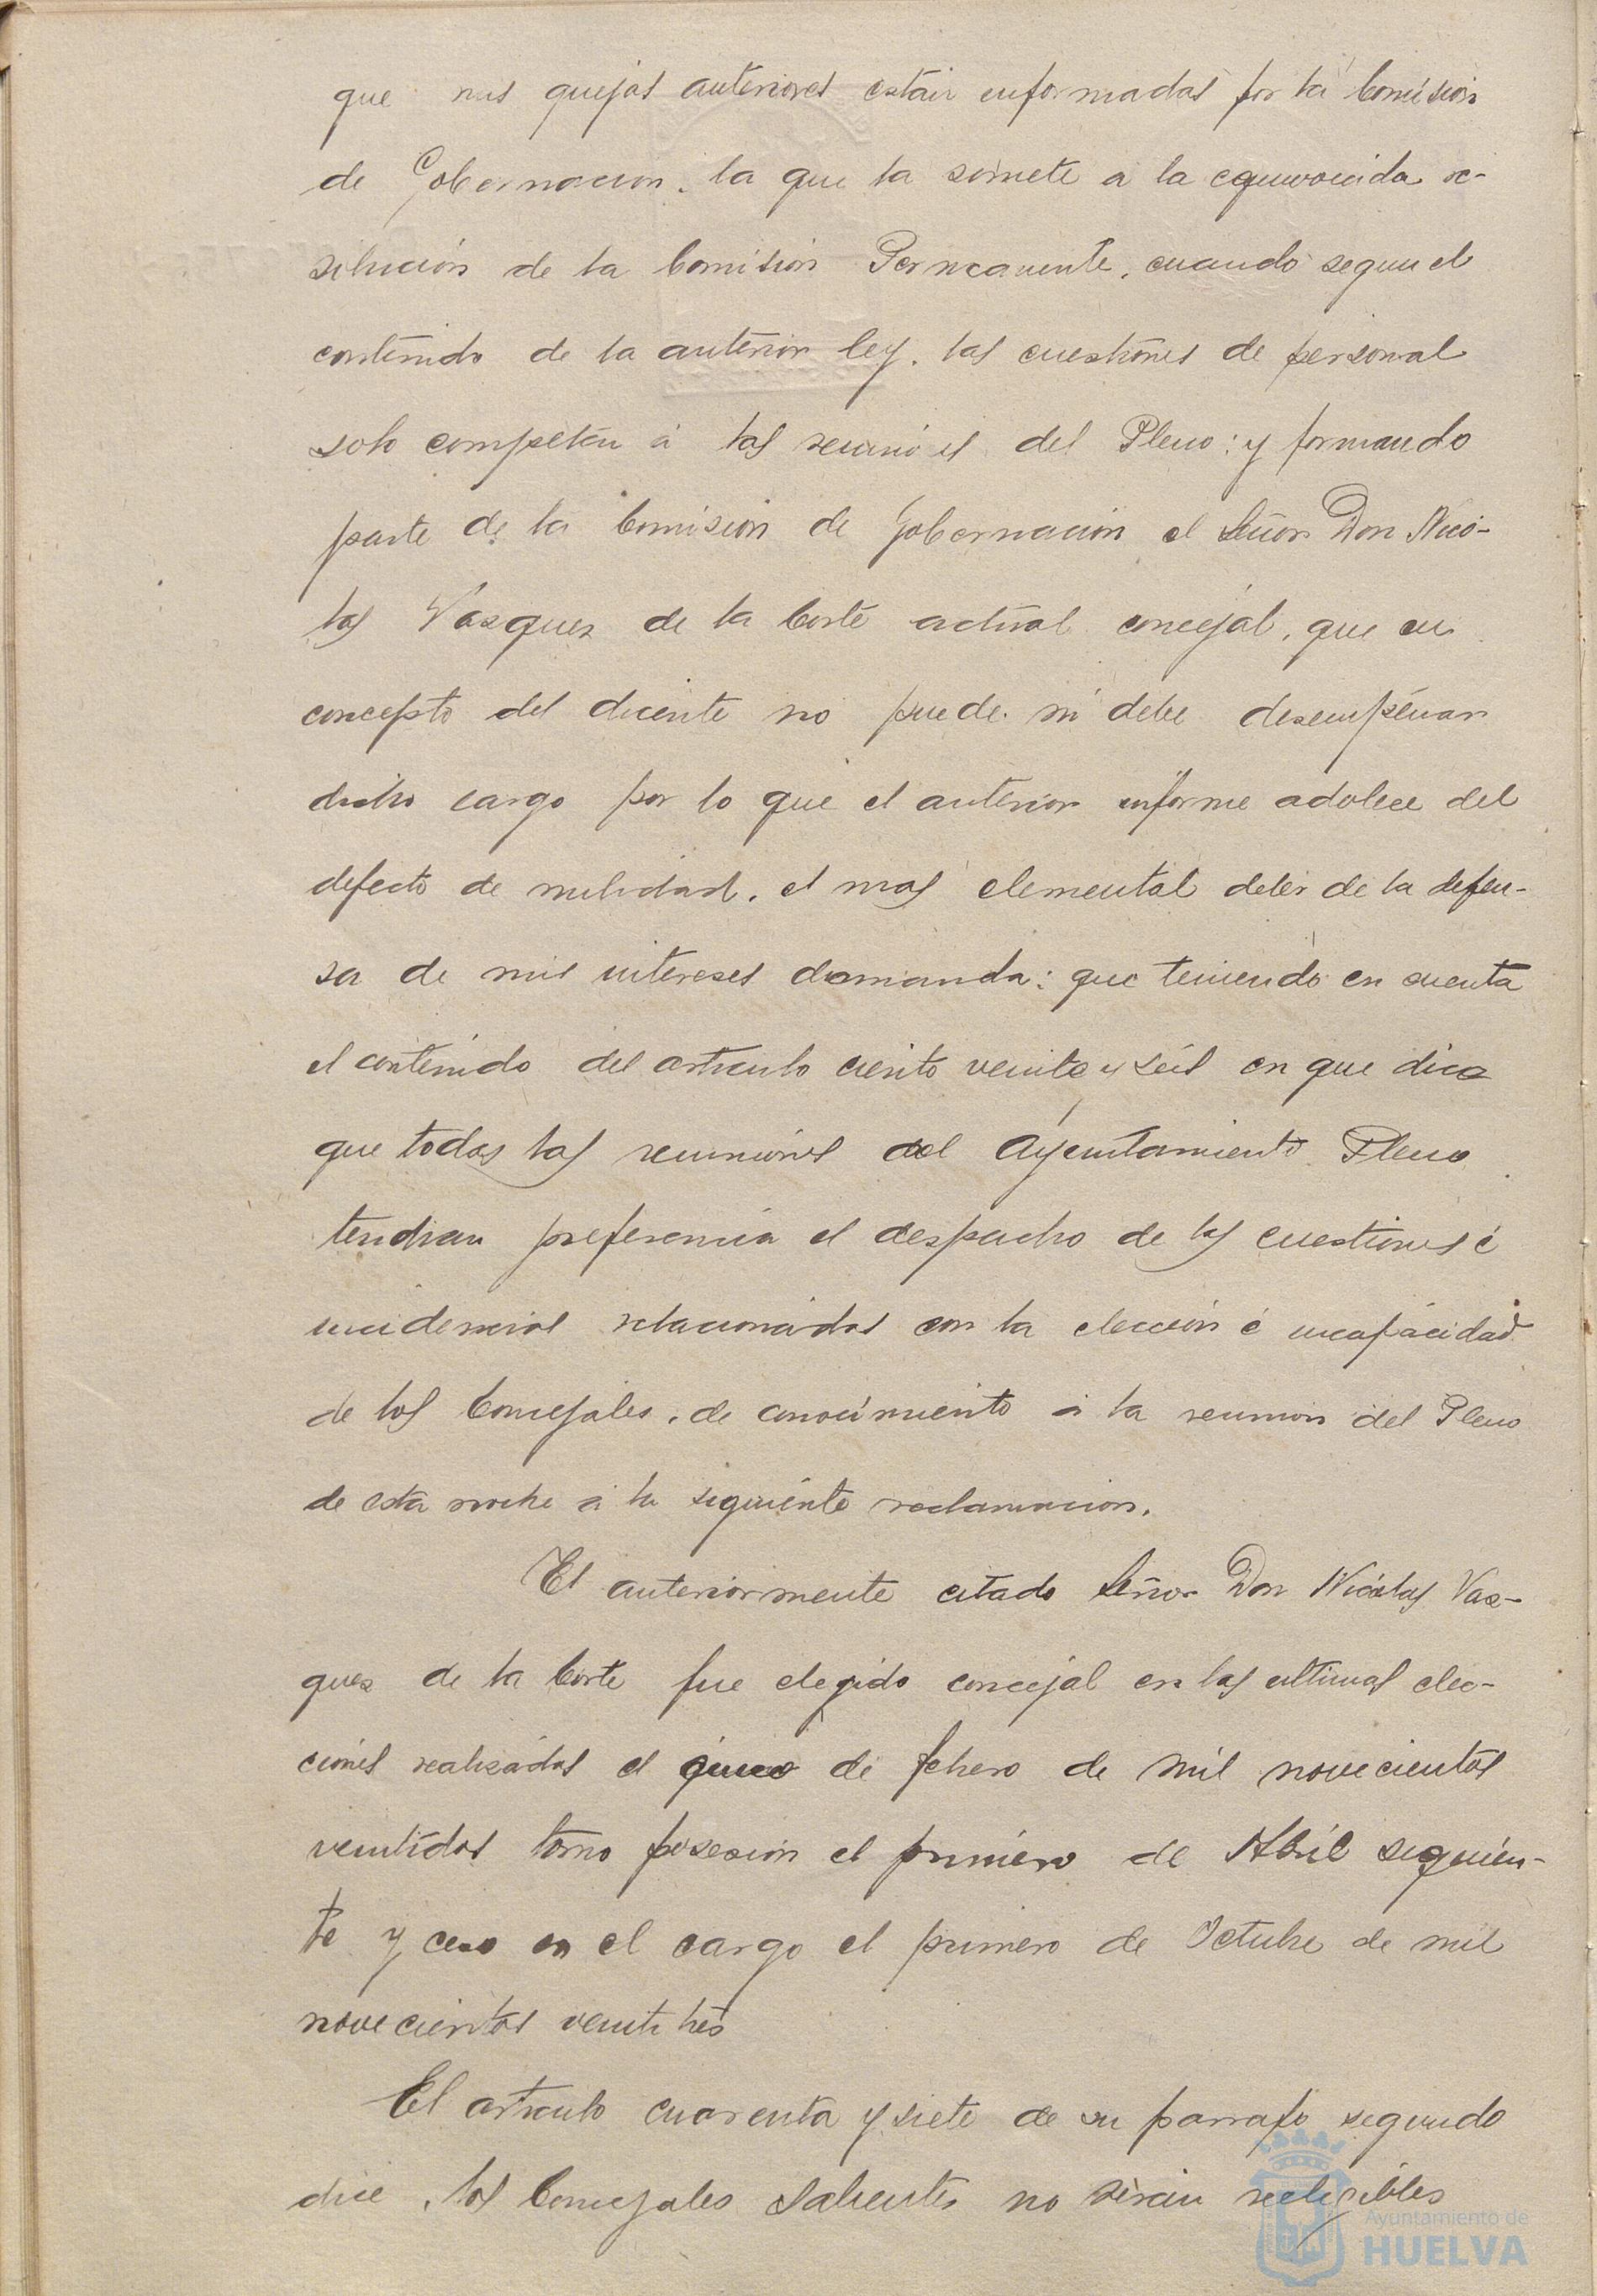 que mis quejas anteriores están informadas por la Comisión
de Gobernacion, la que la somete a la equivocada re-
solución de la Comisión Permanente, cuando segun el
contenido de la anterior ley, las cuestiones de personal
solo competen á las reuniones del Pleno: y formando
parte de la Comisión de Gobernación el Señor Don Nico-
las Vasquez de la Corte actual concejal, que en
concepto del dicente no puede ni debe desempeñar
dicho cargo por lo que el anterior informe adolece del
defecto de nulidad, el mas elemental deber de la defen-
sa de mis intereses demanda: que teniendo en cuenta
el contenido del articulo ciento veinte y seis en que dice
que todas las reuniones del Ayuntamiento Pleno
tendran preferencia el despacho de las cuestiones é
incidencias relacionadas con la elección é incapacidad
de los Concejales, de conocimiento á la reunion del Pleno
de esta noche á la siguiente reclamacion.
El anteriormente citado Señor Don Nicolas Vas-
quez de la Corte fue elegido concejal en las ultimas elec-
ciones realizadas el cinco de febrero de mil novecientos
veintidos tomo posesión el primero de Abril siguien-
te y ceso en el cargo el primero de Octubre de mil
novecientos veintitres
El articulo cuarenta y siete de su parrafo segundo
dice, los Concejales salientes no serán reelegibles
Ayuntamiento de
HUELVA